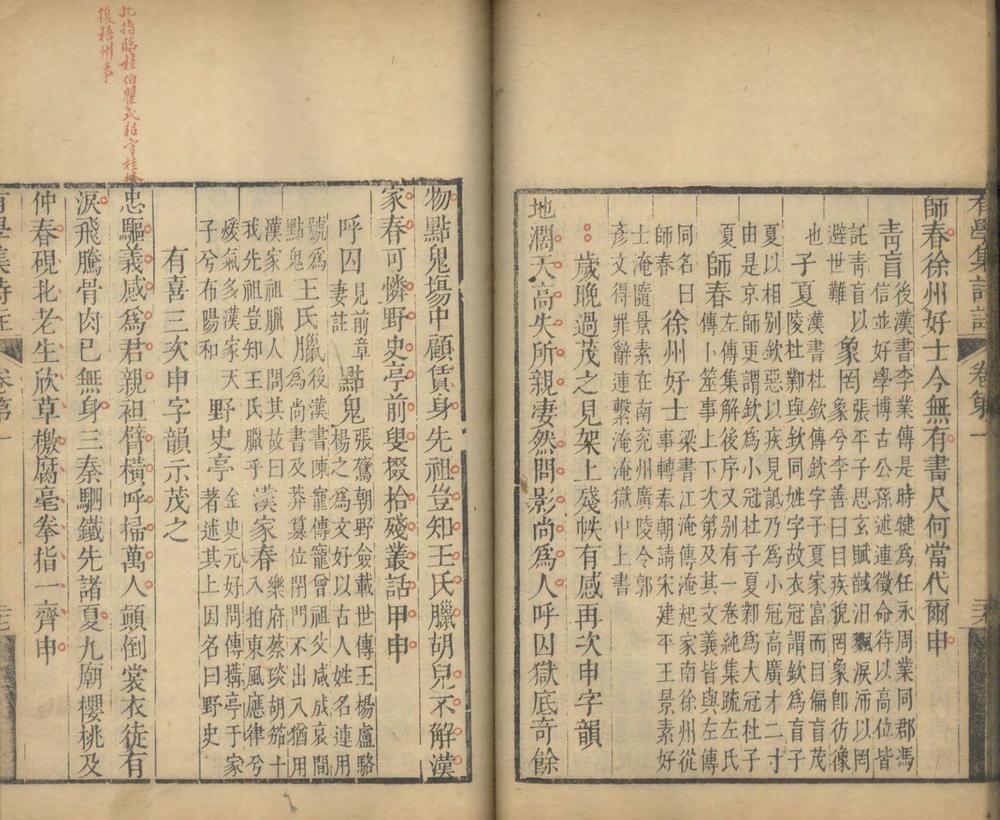 有學集詩註 卷第一
師春徐州好士今無有書尺何當代爾申
青盲 後漢書李業傳是時犍為任永周業同郡馮
信並好學博古公孫述連徵命待以高位皆
託青盲以避世難 象罔 張平子思玄賦戫汨飂淚沛以罔
象兮李善曰目疾貌罔象卽彷像
也 子夏 漢書杜欽傳欽字子夏家富而目偏盲茂
陵杜鄴與欽同姓字故衣冠謂欽爲盲子
夏以相別欽惡以疾見詆乃爲小冠高廣才二寸
由是京師更謂欽爲小冠杜子夏鄴爲大冠杜子
夏 師春 左傳集解後序又別有一卷純集疏左氏
傳卜筮事上下次第及其文義皆與左傳
同名曰師春 徐州好士 梁書江淹傳淹起家南徐州從
事轉奉朝請宋建平王景素好
士淹隨景素在南兖州廣陵令郭
彥文得罪辭連繫淹淹獄中上書
歲晚過茂之見架上殘帙有感再次申字韻
地濶天高失所親凄然問影尚爲人呼囚獄底奇餘
物點鬼塲中顧賃身先祖豈知王氏臘胡兒不解漢
家春可憐野史亭前叟掇拾殘叢話甲申
呼囚 見前章妻註 點鬼 張鷟朝野僉載世傳王楊盧駱
楊之爲文好以古人姓名連用
號爲點鬼 王氏臘 後漢書陳寵傳寵曾祖父咸成哀間
爲尚書及莽篡位閉門不出入猶用
漢家祖臘人問其故曰
我先祖豈知王氏臘乎 漢家春 樂府蔡琰胡笳十
入拍東風應律兮
煖氣多漢家天子兮布陽和 野史亭 金史元好問傳構亭于家
著述其上因名曰野史
有喜三次申字韻示茂之
忠驅義感爲君親袒臂橫呼掃萬人顛倒裳衣徒有
淚飛騰骨肉已無身三秦駟鐵先諸夏九廟櫻桃及
仲春硯北老生欣草檄腐毫拳指一齊申
有學集詩註 卷第一
此指臨桂伯瞿式耜守桂林
復梧州事